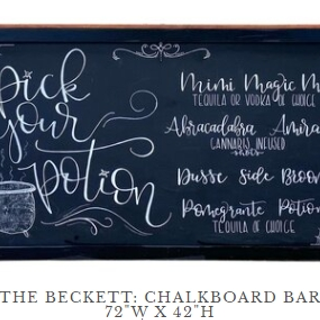 Pick
your
Potion
Mimi Magic M
TEQUILA OR VODKA OF CHOICE
Abracadabra Amira
CANNABIS INFUSED
Dusse Side Broom
Pomegrante Potion
TEQUILA OF CHOICE
THE BECKETT: CHALKBOARD BAR
72"W X 42"H